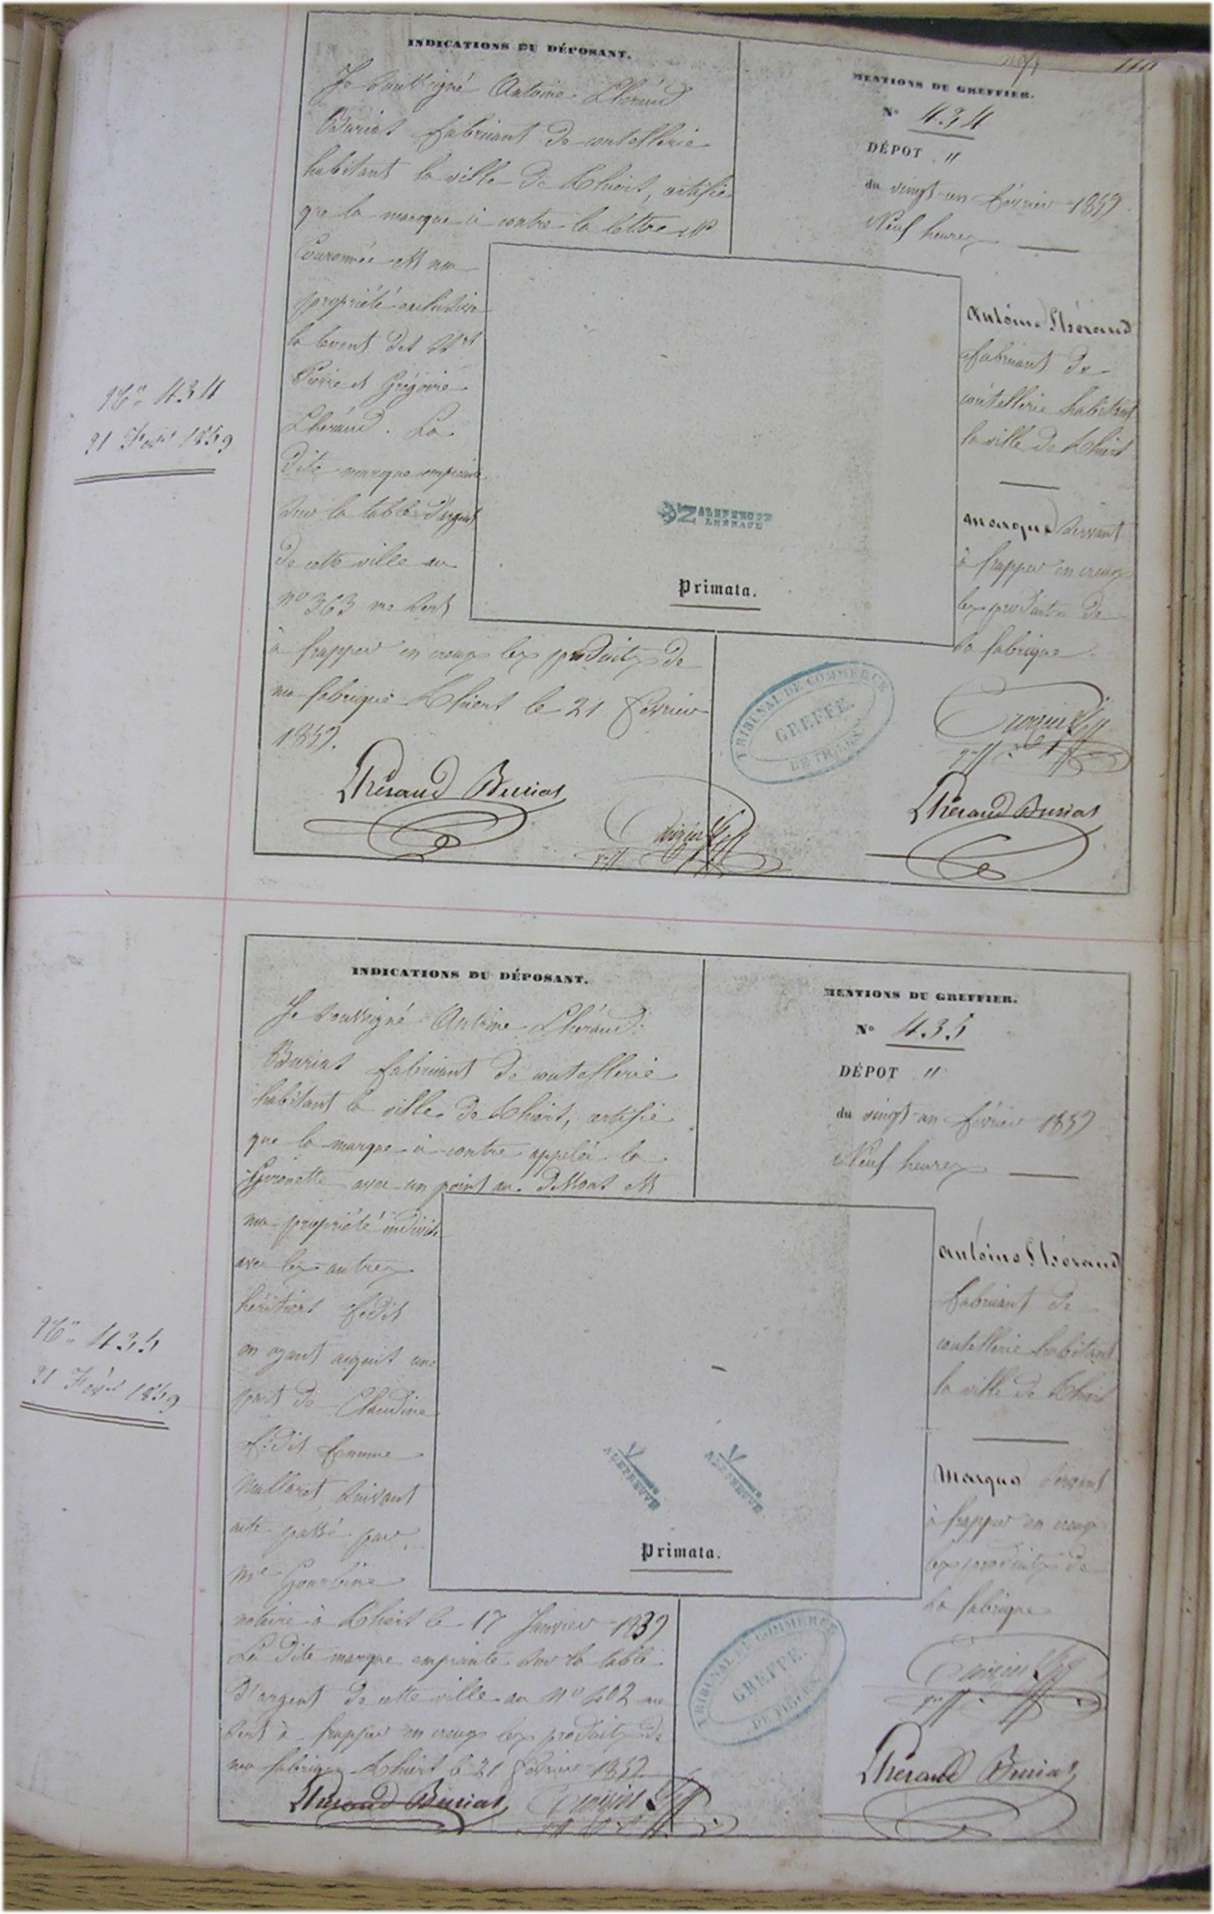 INDICATIONS DU DÉPOSANT.
Je soussigné Antoine Lhéraud
Buriat fabricant de coutellerie
habitant la ville de Thiers, certifie
que la marque ci contre la lettre N
Couronnée est ma
propriété exclusive
la tenant des
Pierre et Grégoire
Lhéraud. La
dite marque empreinte
sur la table d'argent
de cette ville au
n° 363 me sert
à frapper en creux les produits de
ma fabrique Thiers le 21 février
1859.
Lhéraud Buriat
MENTIONS DU GREFFIER.
N° 434
DÉPOT "
du vingt-un février 1859
Neuf heures
Antoine Lhéraud
fabricant de
coutellerie habitant
la ville de Thiers
marque servant
à frapper en creux
les produits de
sa fabrique.
Lhéraud Buriat
N° 434
21 Fév 1859
N
LHERAUD
Primata.
TRIBUNAL DE COMMERCE
GREFFE.
DE THIERS
INDICATIONS DU DÉPOSANT.
Je soussigné Antoine Lhéraud
Buriat fabricant de coutellerie
habitant la ville de Thiers, certifie
que la marque ci contre appelée la
Girouette avec un point au dessous est
ma propriété indivise
avec les autres
héritiers
en ayant acquit une
part de Claudine
femme
suivant
acte passé par
Me
notaire à Thiers le 17 Janvier 1839
La dite marque empreinte sur la table
d'argent de cette ville au N° 402 me
sert à frapper en creux les produits de
ma fabrique Thiers le 21 février 1859
Lhéraud Buriat
MENTIONS DU GREFFIER.
N° 435
DÉPOT "
du vingt-un février 1859
Neuf heures
Antoine Lhéraud
fabricant de
coutellerie habitant
la ville de Thiers
Marque servant
à frapper en creux
les produits de
sa fabrique
Lhéraud Buriat
N° 435
21 Fév 1859
ALEPREUVE
ALEPREUVE
Primata.
TRIBUNAL DE COMMERCE
GREFFE.
DE THIERS.